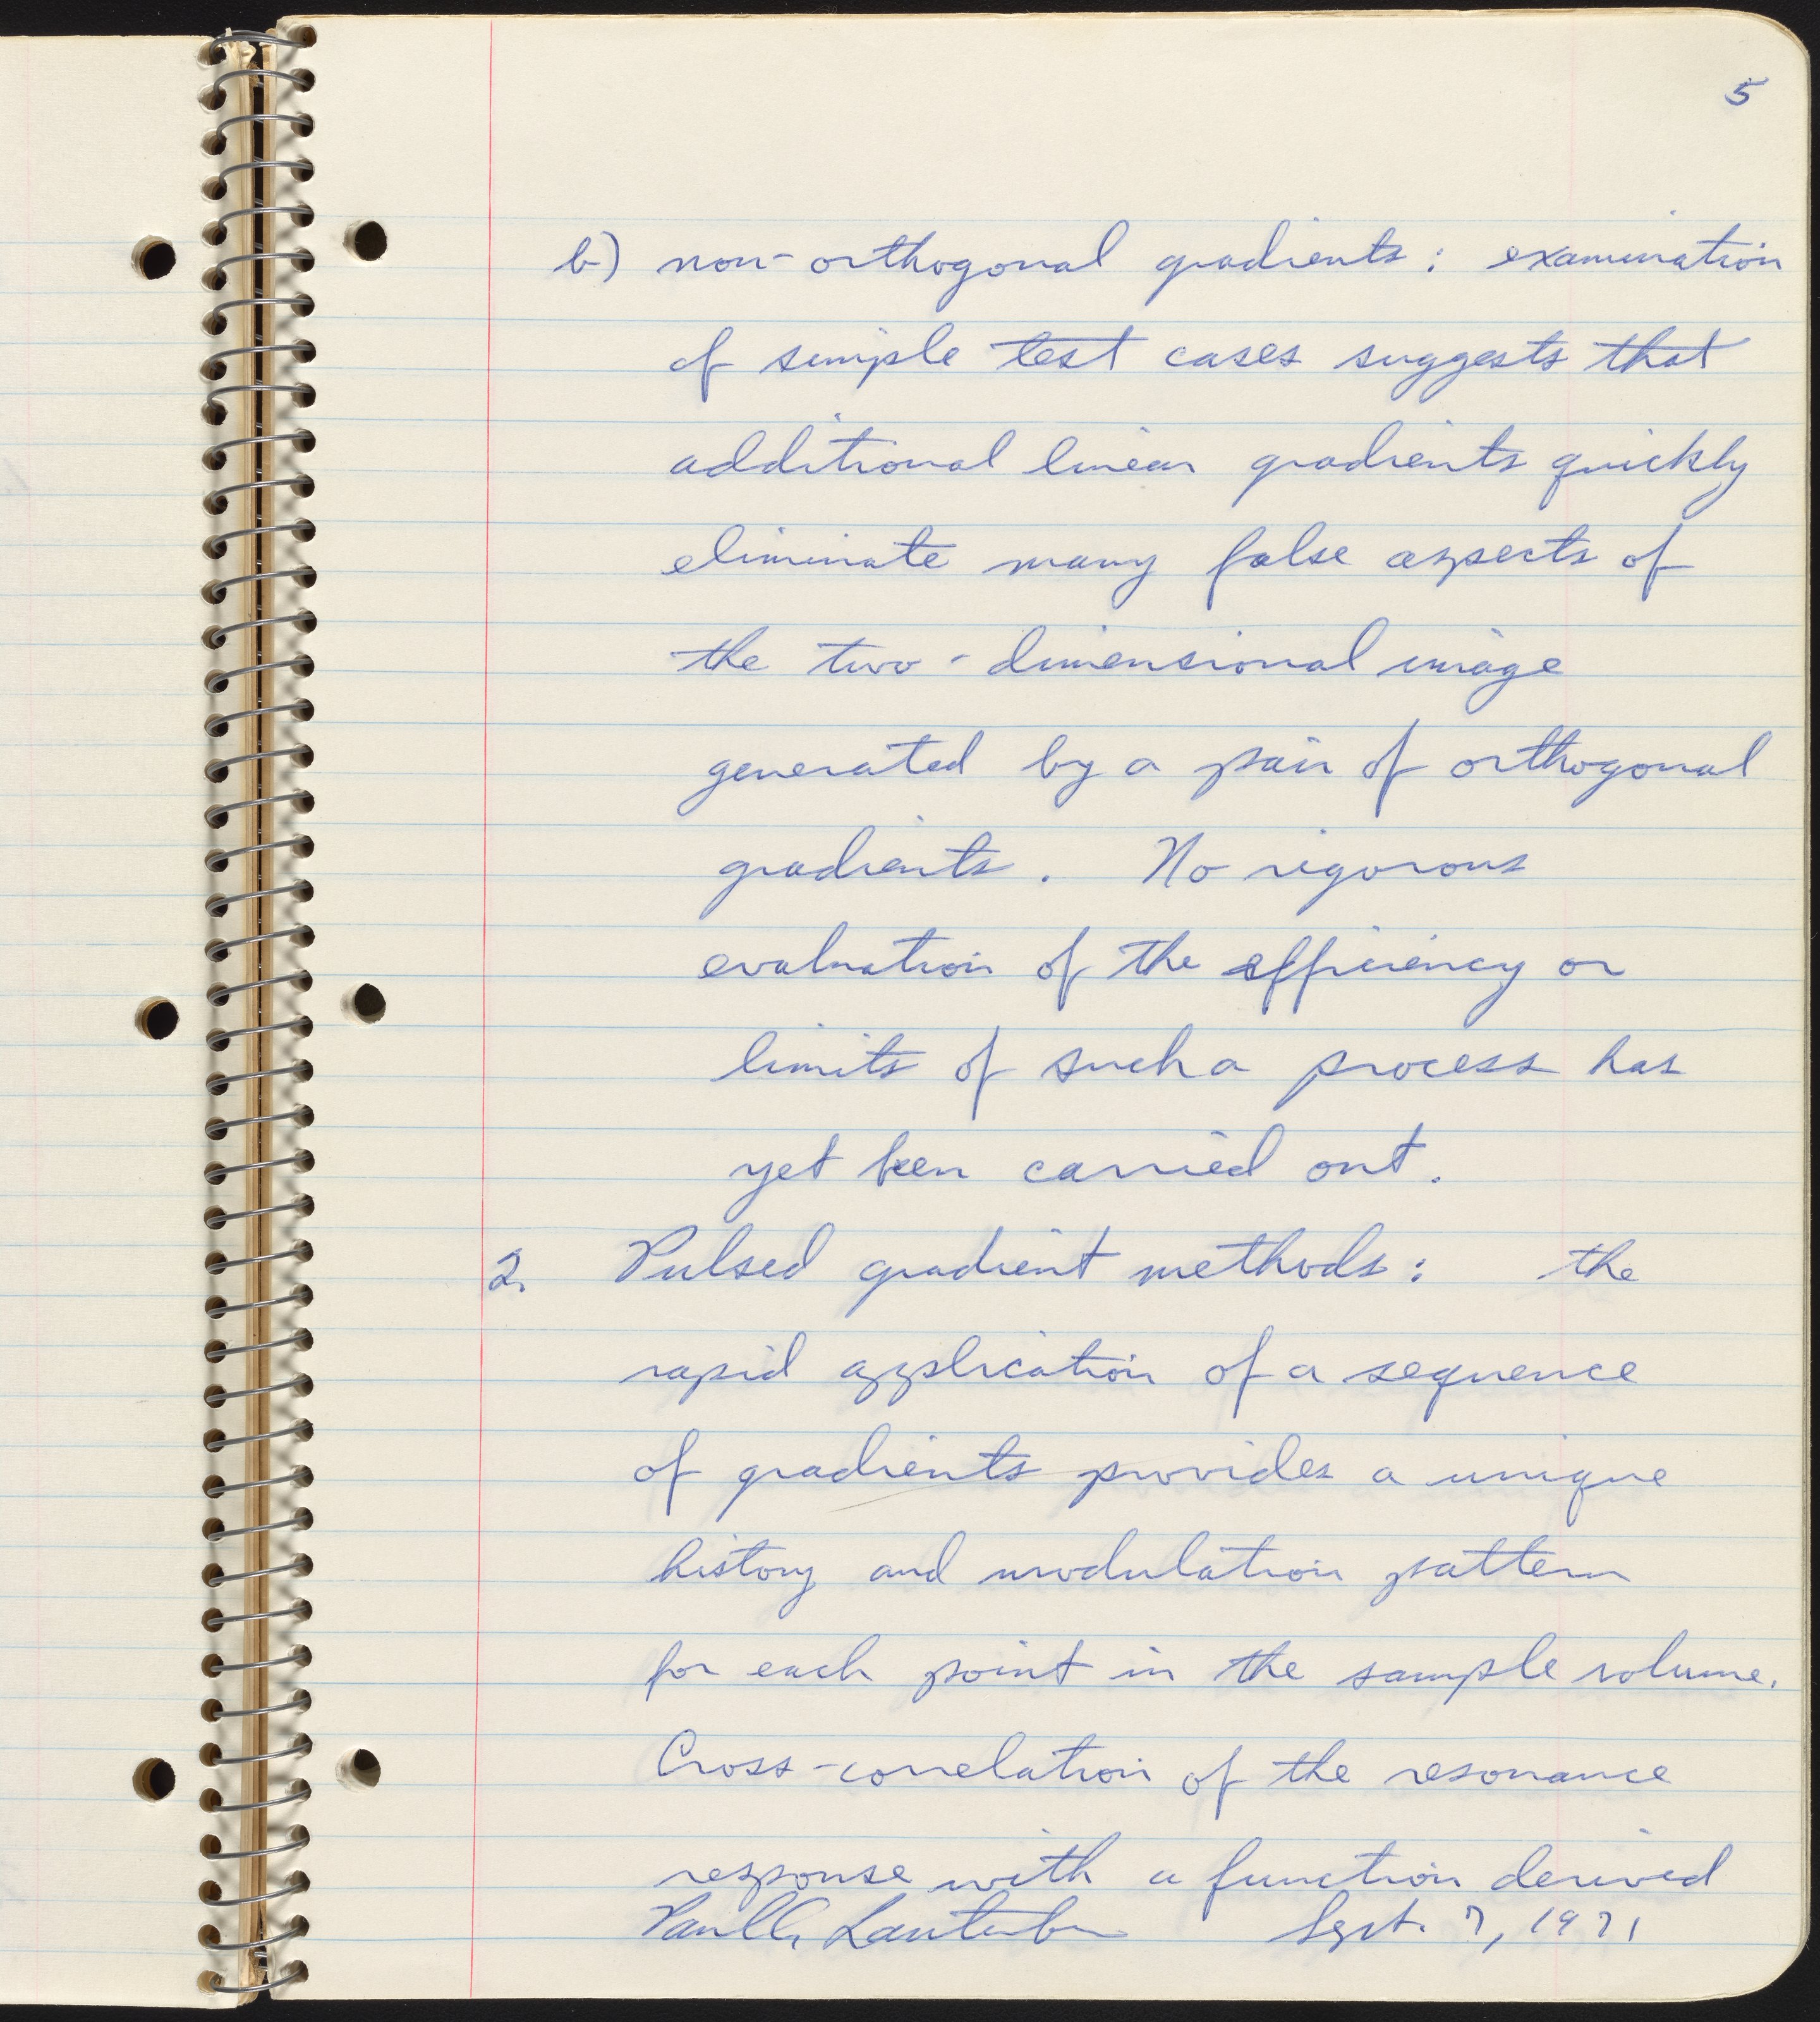 5
b) non-orthogonal gradients: examination
of simple test cases suggests that
additional linear gradients quickly
eliminate many false aspects of
the two-dimensional image
generated by a pair of orthogonal
gradients. No rigorous
evaluation of the efficiency or
limits of such a process has
yet been carried out.
2. Pulsed gradient methods: the
rapid application of a sequence
of gradients provides a unique
history and modulation pattern
for each point in the sample volume.
Cross-correlation of the resonance
response with a function derived
Paul C. Lauterbur Sept. 7, 1971